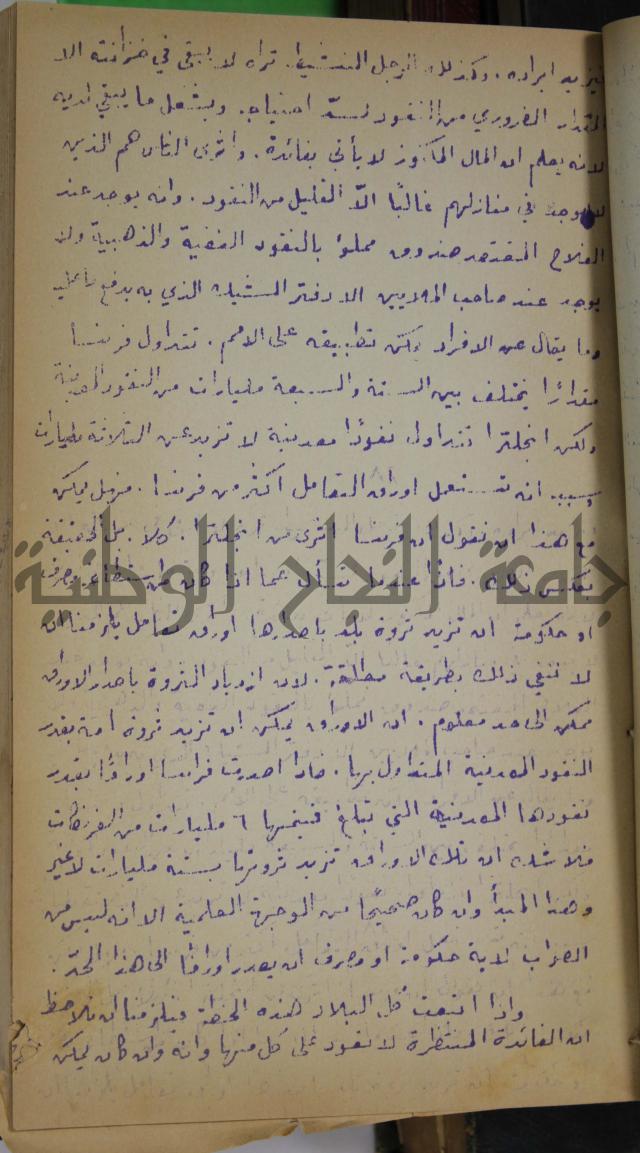 ليزيد ايراده. وكذلك الرجل النشيط تراه لا يبقى في خزانته الا
المقدار الضروري من النقود لسدّ احتياجه. ويشغل ما يبقى لديه
لانه يعلم ان المال المكنوز لا يأتي بفائدة. واثرى الناس هم الذين
لا يوجد في منازلهم غالبًا الاّ القليل من النقود. وانه يوجد عند
الفلاح المقتصد صندوق مملوء بالنقود الفضية والذهبية ولا
يوجد عند صاحب الملايين الا دفتر الشيك الذي به يدفع ما عليه
وما يقال عن الافراد يمكن تطبيقه على الامم. تتداول فرنسا
مقدارًا يختلف بين الستة والسبعة مليارات من النقود المعدنية
ولكن انجلترا تتداول نقودًا معدنية لا تزيد عن الثلاثة مليارات
بسبب انه تستعمل اوراق التعامل اكثر من فرنسا. فهل يمكن
مع هذا ان نقول ان فرنسا اثرى من انجلترا. كلا. بل الحقيقة
بعكس ذلك. فاذًا عندما نسأل عما اذا كان باستطاعة مصرف
او حكومة ان تزيد ثروة بلد باصدارها اوراق تعامل يلزمنا ان
لا ننفي ذلك بطريقة مطلقة. لان ازدياد الثروة باصدار الاوراق
ممكن الى حد معلوم. ان الاوراق يمكن ان تزيد ثروة امة بقدر
النقود المعدنية المتداول بها. فاذا اصدرت فرنسا اوراقًا بقدر
نقودها المعدنية التي تبلغ قيمتها ٦ مليارات من الفرنكات
فلا شك ان تلك الاوراق تزيد ثروتها بستة مليارات لا غير
وهذا المبدأ وان كان صحيحًا من الوجهة العلمية الا انه ليس من
الصواب لاية حكومة او مصرف ان يصدر اوراقًا الى هذا الحدّ.
واذا اتبعت كل البلاد هذه الخطة فيلزمنا ان نلاحظ
ان الفائدة المنتظرة لا تعود على كل منها وانه وان كان يمكن
جامعة النجاح الوطنية